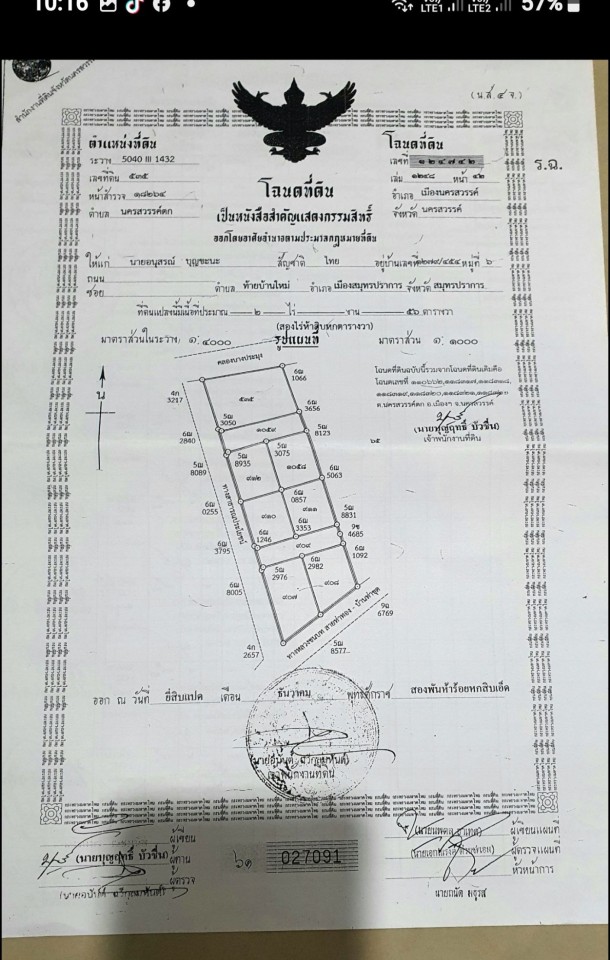 10:16
LTE1 LTE2 57%
(น.ส. ๔ จ.)
ตำแหน่งที่ดิน
ระวาง 5040 III 1432
เลขที่ดิน ๕๓๕
หน้าสำรวจ ๑๘๒๖๔
ตำบล นครสวรรค์ตก
โฉนดที่ดิน
เลขที่ ๑๒๔๗๔๒
เล่ม ๑๒๔๘ หน้า ๔๒
อำเภอ เมืองนครสวรรค์
จังหวัด นครสวรรค์
ร.ฉ.
โฉนดที่ดิน
เป็นหนังสือสำคัญแสดงกรรมสิทธิ์
ออกโดยอาศัยอำนาจตามประมวลกฎหมายที่ดิน
ให้แก่ นายอนุสรณ์ บุญชะนะ สัญชาติ ไทย อยู่บ้านเลขที่ ๒๗๙/๔๕๔ หมู่ที่ ๖
ถนน
ซอย ตำบล ท้ายบ้านใหม่ อำเภอ เมืองสมุทรปราการ จังหวัด สมุทรปราการ
ที่ดินแปลงนี้มีเนื้อที่ประมาณ ๒ ไร่ งาน ๕๖ ตารางวา
(สองไร่ห้าสิบหกตารางวา)
มาตราส่วนในระวาง ๑: ๔๐๐๐ รูปแผนที่ มาตราส่วน ๑: ๑๐๐๐
คลองบางประมุง
โฉนดที่ดินฉบับนี้รวมจากโฉนดที่ดินเดิมคือ
ต.นครสวรรค์ตก อ.เมืองฯ จ.นครสวรรค์
(นายพูญฤทธิ์ บัวชื่น)
เจ้าพนักงานที่ดิน
4ก 3217
6ฌ 1066
๕๓๕
6ฌ 3656
5ฌ 3050
๑๐๕๙
6ฌ 2840
5ฌ 8123
๖๕
5ฌ 8935
5ฌ 3075
๑๐๕๘
5ฌ 8089
๙๑๒
6ฌ 5063
6ฌ 0857
6ฌ 0255
๙๑๐
๙๑๑
5ฌ 8831
ทางสาธารณประโยชน์
6ฌ 1246
6ฌ 3353
9ช 4685
6ฌ 3795
๙๐๙
6ฌ 1092
5ฌ 2976
6ฌ 2982
6ฌ 8005
๙๐๗
๙๐๘
9ฉ 6769
4ก 2657
5ฌ 8577
ทางหลวงชนบท สายท่าทอง - บ้านท่าขุด
ออก ณ วันที่ ยี่สิบแปด เดือน ธันวาคม พุทธศักราช สองพันห้าร้อยหกสิบเอ็ด
เจ้าพนักงานที่ดิน
(นายพูญฤทธิ์ บัวชื่น)
ผู้เขียน
ผู้ทาน
ผู้ตรวจ
๖๑ 027091
ผู้เขียนแผนที่
ผู้ตรวจแผนที่
หัวหน้าการ